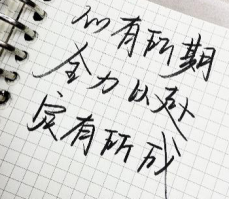 心有所期
全力以赴
定有所成